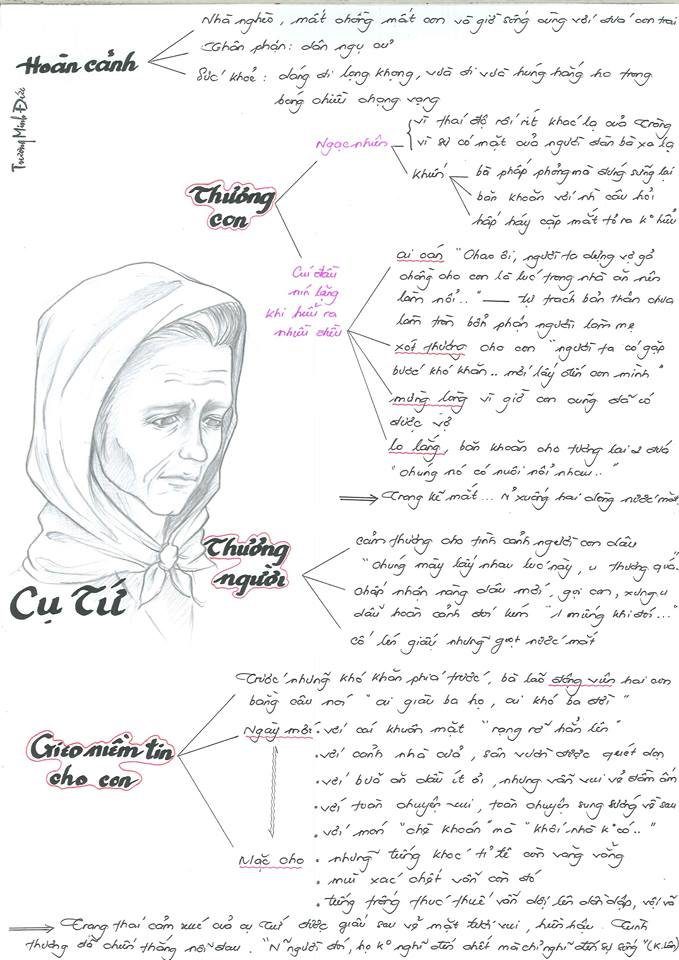 Nhà nghèo, mất chồng mất con và giờ sống cùng với đứa con trai
Hoàn cảnh
Thân phận: dân ngụ cư
Sức khoẻ: dáng đi lọng khọng, vừa đi vừa húng hắng ho trong
bóng chiều chạng vạng
Trương Minh Đức
Thương
con
Ngạc nhiên
vì thái độ rối rít khác lạ của Tràng
vì sự có mặt của người đàn bà xa lạ
khiến
bà phấp phỏng mà đứng sững lại
băn khoăn với nh câu hỏi
hấp háy cặp mắt tỏ ra k° hiểu
Cúi đầu
nín lặng
khi hiểu ra
nhiều điều
ai oán "Chao ôi, người ta dựng vợ gả
chồng cho con là lúc trong nhà ăn nên
làm nổi.." — Tự trách bản thân chưa
làm tròn bổn phận người làm mẹ
xót thương cho con "người ta có gặp
bước khó khăn.. mới lấy đến con mình"
mừng lòng vì giờ con cũng đã có
được vợ
lo lắng, băn khoăn cho tương lai 2 đứa
"chúng nó có nuôi nổi nhau.."
⟹ Trong kẽ mắt... rỉ xuống hai dòng nước mắt
Cụ Tứ
Thương
người
cảm thương cho tình cảnh người con dâu
"chúng mày lấy nhau lúc này, u thương quá.
chấp nhận nàng dâu mới, gọi con, xưng u
dẫu hoàn cảnh đói kém "u mừng khi đói..."
cố lén giấu những giọt nước mắt
Gieo niềm tin
cho con
Trước những khó khăn phía trước, bà lão động viên hai con
bằng câu nói "ai giàu ba họ, ai khó ba đời"
Ngày mới
• với cái khuôn mặt "rạng rỡ hẳn lên"
• với cảnh nhà cửa, sân vườn được quét dọn
• với bữa ăn dẫu ít ỏi, nhưng vẫn vui vẻ đầm ấm
• với toàn chuyện vui, toàn chuyện sung sướng về sau
• với món "chè khoán" mà "khối nhà k° có.."
Mặc cho
• những tiếng khóc tỉ tê còn vang vẳng
• mùi xác chết vẫn còn đó
• tiếng trống thúc thuế vẫn dội lên dồn dập, vội vã
⟹ Trạng thái cảm xúc của cụ Tứ được giấu sau vẻ mặt tươi vui, hiền hậu. Tình
thương đã chiến thắng nỗi đau. "N~ người đói, họ k° nghĩ đến chết mà chỉ nghĩ đến sự sống" (K.Lân)